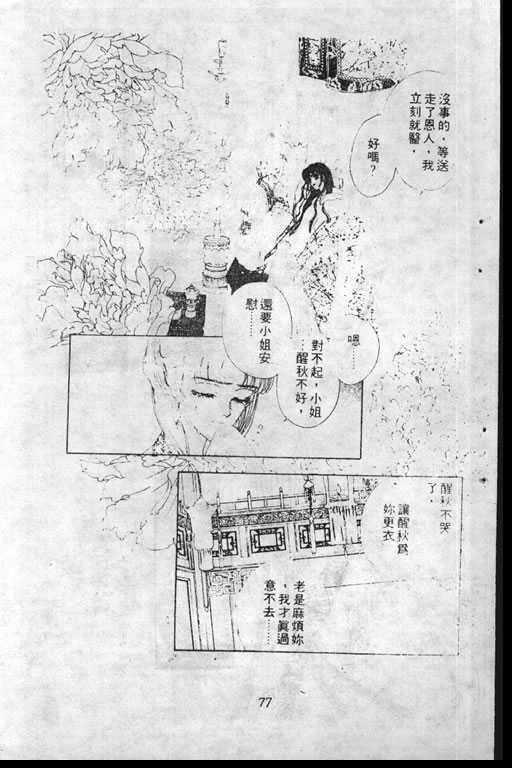 沒事的，等送
走了恩人，我
立刻就醫，
好嗎？
嗯……
對不起，小姐
…醒秋不好，
還要小姐安
慰……
醒秋不哭
了，
讓醒秋為
妳更衣
老是麻煩妳
，我才真過
意不去……
77